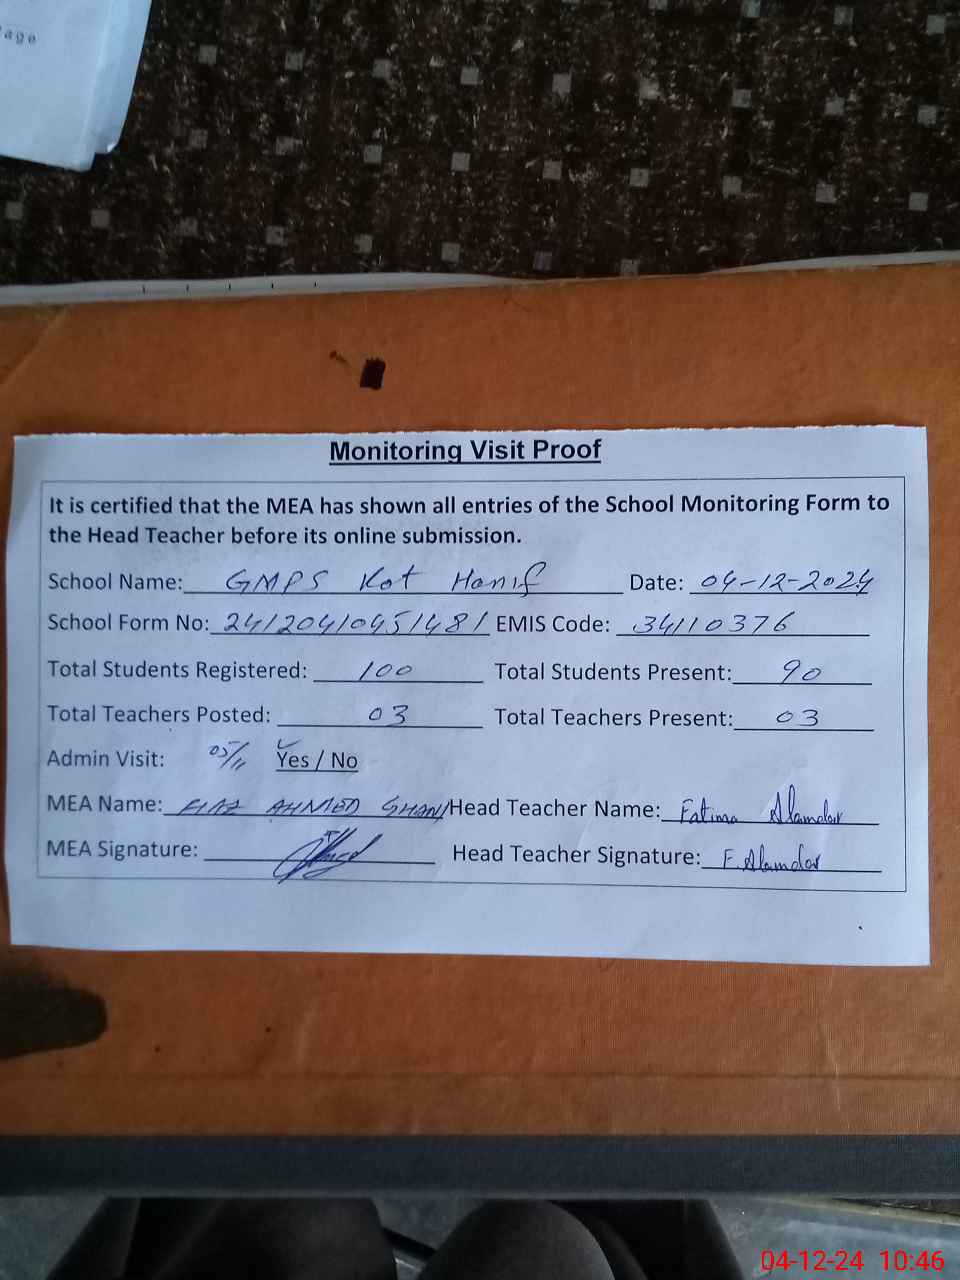 age
Monitoring Visit Proof
It is certified that the MEA has shown all entries of the School Monitoring Form to
the Head Teacher before its online submission.
School Name: GMPS Kot Hanif Date: 04-12-2024
School Form No: 24120410451481 EMIS Code: 34110376
Total Students Registered: 100 Total Students Present: 90
Total Teachers Posted: 03 Total Teachers Present: 03
Admin Visit: 05/11 Yes / No
MEA Name: AHMED GHANI Head Teacher Name: Fatima Alamdar
MEA Signature: Head Teacher Signature: F. Alamdar
04-12-24 10:46